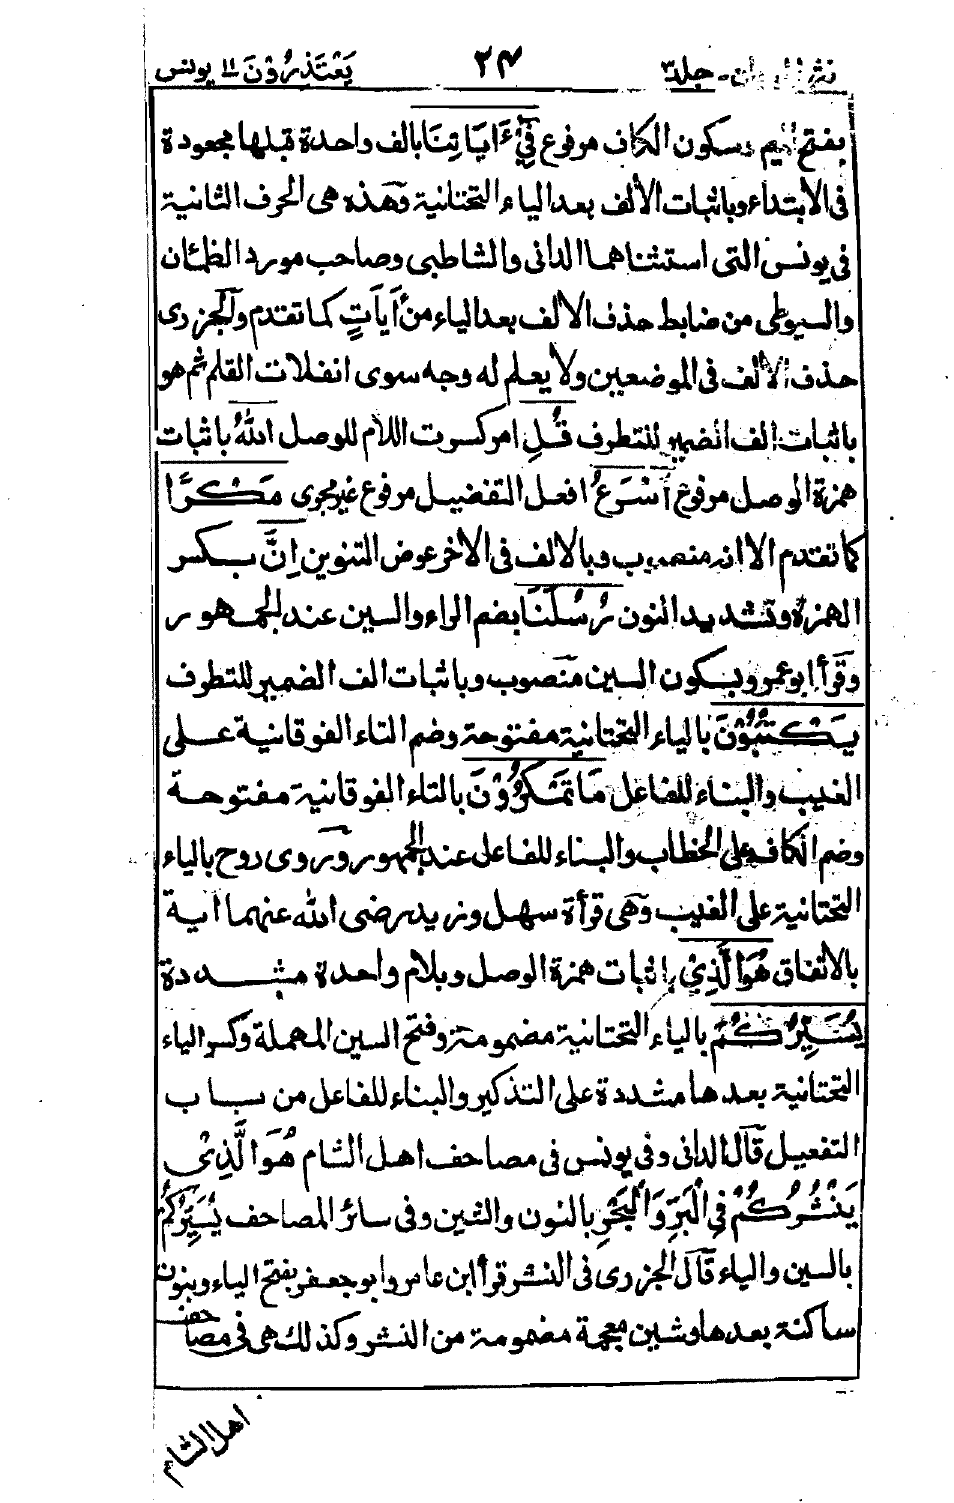 نثر المرجان - جلد ٣ ٢٤ يَعْتَذِرُوْنَ ١١ يونس
بفتح الميم وسكون الكاف مرفوع فِيْٓ ءَايَاتِنَا بالف واحدة قبلها مجعودة
فى الابتداء وباثبات الألف بعد الياء التحتانية وهذه هى الحرف الثانية
فى يونس التى استثناهما الدانى والشاطبى وصاحب مورد الظمئان
والسيوطى من ضابط حذف الالف بعد الياء من أيَاتٍ كما تقدم والجزرى
حذف الألف فى الموضعين ولا يعلم له وجه سوى انفلات القلم ثم هو
باثبات الف الضمير للتطرف قُلِ امر كسرت اللام للوصل اللهُ باثبات
همزة الوصل مرفوع أَسْرَعُ افعل التفضيل مرفوع غير مجرى مَكْرًا
كما تقدم الا انه منصوب وبالالف فى الأخر عوض التنوين اِنَّ بكسر
الهمزة وتشديد النون رُسُلَنَا بضم الراء والسين عند الجمهور
وقرأ ابو عمرو بسكون السين منصوب وباثبات الف الضمير للتطرف
يَكْتُبُوْنَ بالياء التحتانية مفتوحة وضم التاء الفوقانية على
الغيب والبناء للفاعل مَا تَمْكُرُوْنَ بالتاء الفوقانية مفتوحة
وضم الكاف على الخطاب والبناء للفاعل عند الجمهور وروى روح بالياء
التحتانية على الغيب وهى قرأة سهل وزيد رضى الله عنهما اية
بالاتفاق هُوَ الَّذِيْ باثبات همزة الوصل وبلام واحدة مشددة
يُسَيِّرُكُمْ بالياء التحتانية مضمومة وفتح السين المهملة وكسر الياء
التحتانية بعدها مشددة على التذكير والبناء للفاعل من باب
التفعيل قال الدانى وفى يونس فى مصاحف اهل الشام هُوَ الَّذِىْ
يَنْشُرُكُمْ فِى الْبَرِّ وَالْبَحْرِ بالنون والشين وفى سائر المصاحف يُسَيِّرُكُمْ
بالسين والياء قال الجزرى فى النشر قرأ ابن عامر وابو جعفر بفتح الياء وبنون
ساكنة بعدها وشين معجمة مضمومة من النشر وكذلك هى فى مصاحف
اهل الشام